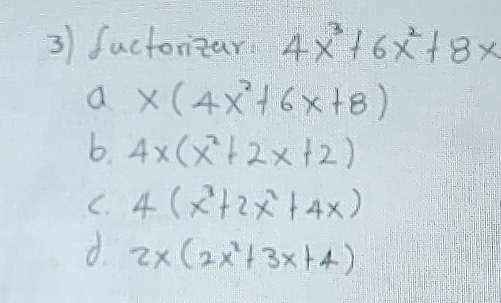 3) factorizar: 4x³+6x²+8x
a x(4x²+6x+8)
b. 4x(x²+2x+2)
c. 4(x³+2x²+4x)
d. 2x(2x²+3x+4)